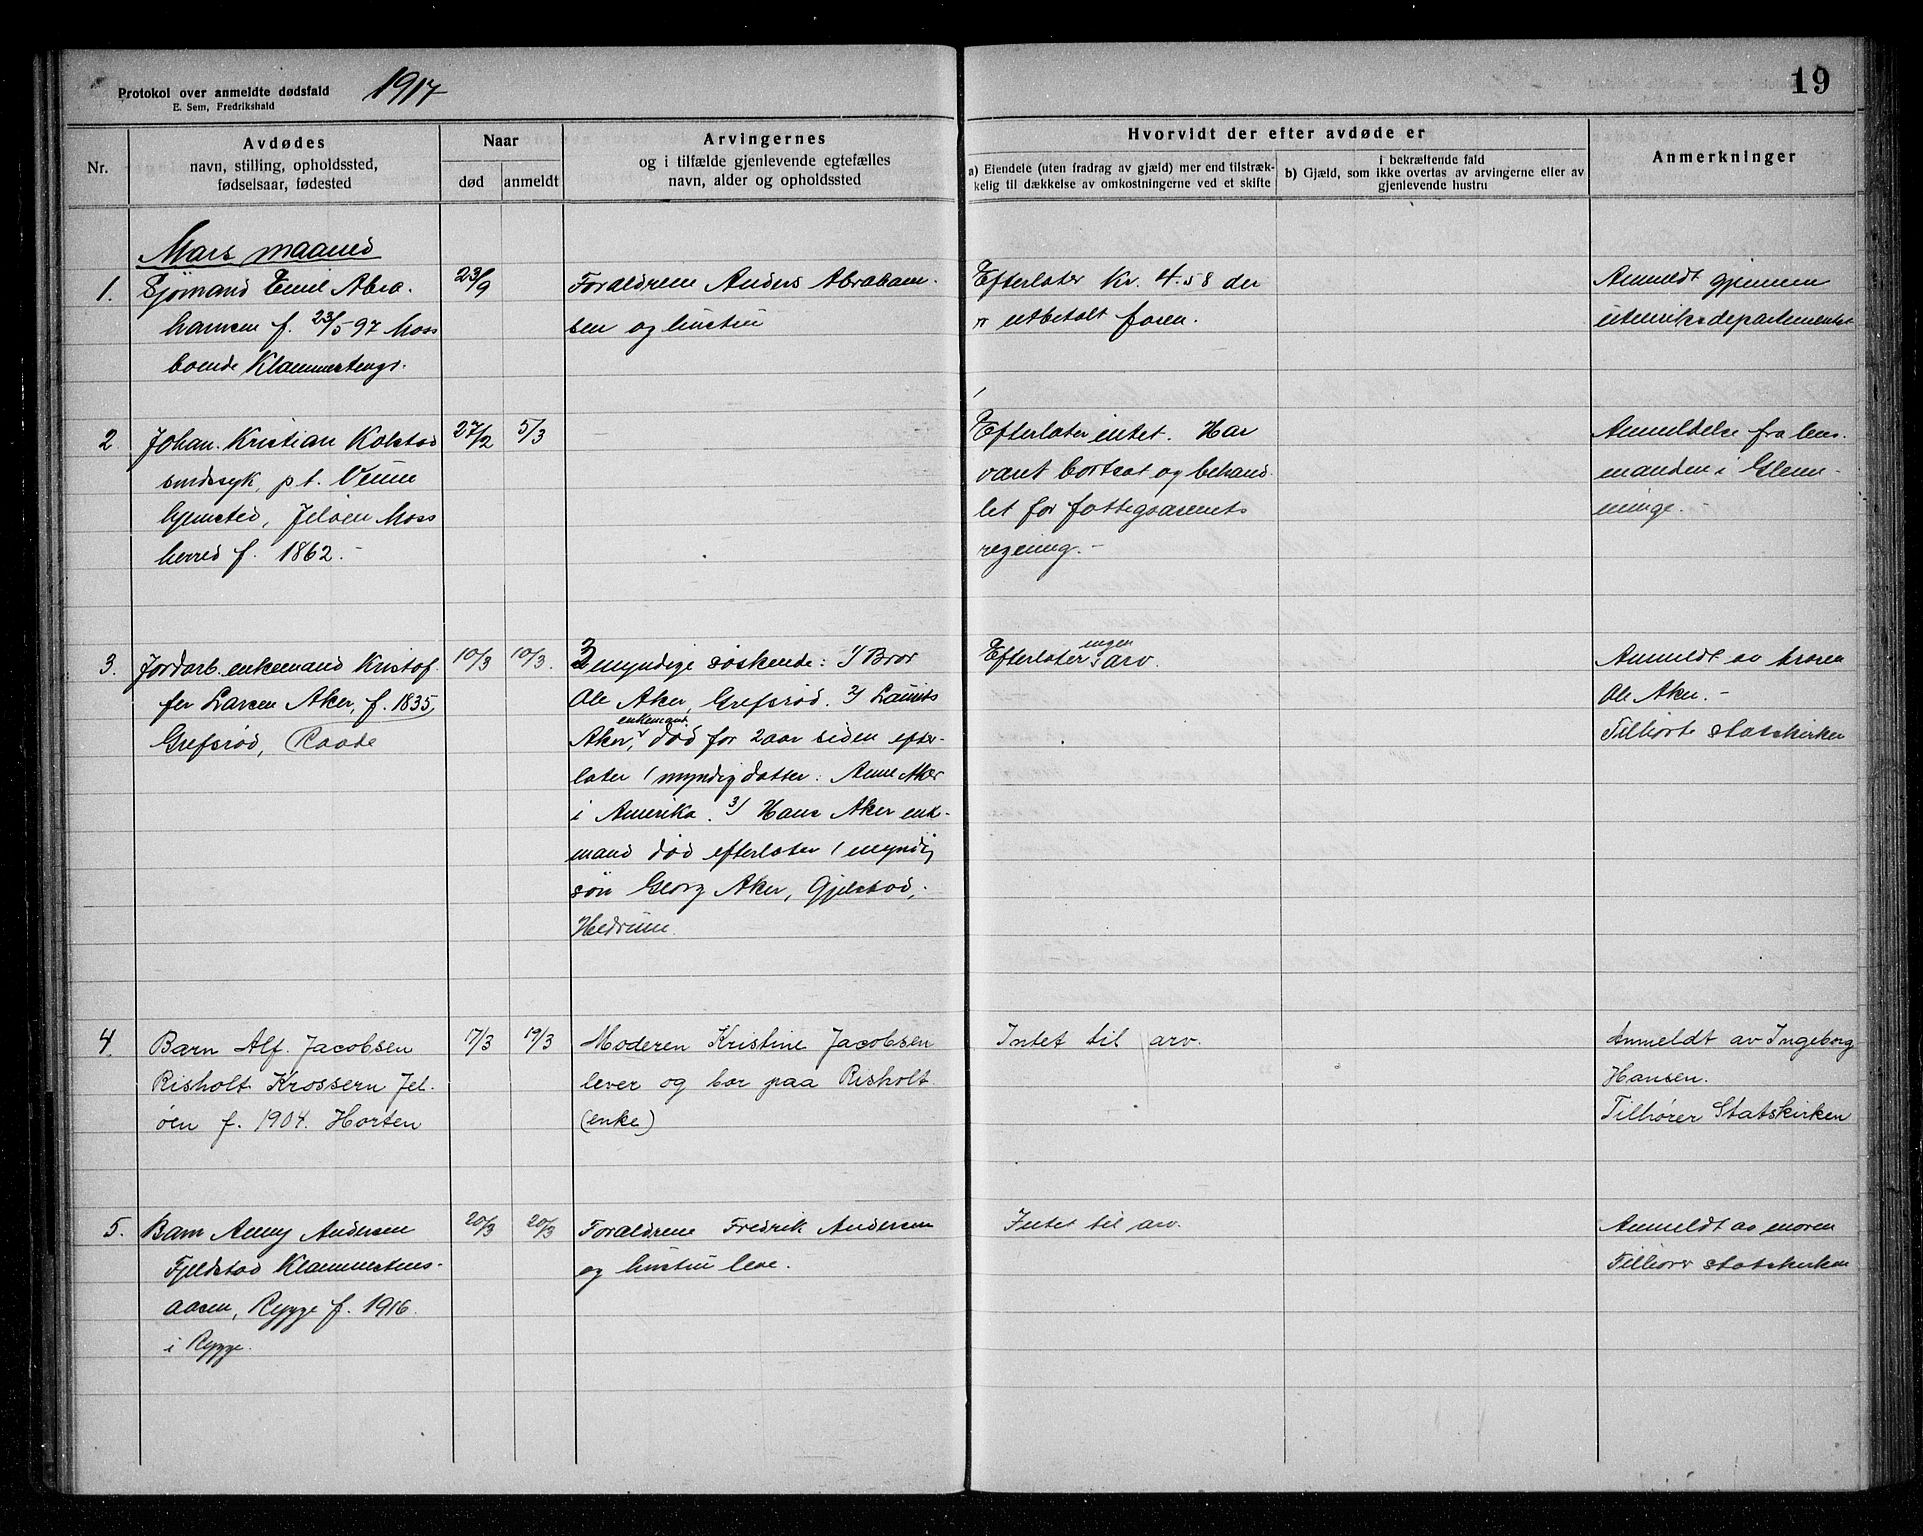 Protokol over anmeldte dødsfald
E. Sem, Fredrikshald
1917
19
Nr.
Avdødes
navn, stilling, opholdssted,
fødselsaar, fødested
Naar
død
anmeldt
Arvingernes
og i tilfælde gjenlevende egtefælles
navn, alder og opholdssted
Hvorvidt der efter avdøde er
a) Eiendele (uten fradrag av gjæld) mer end tilstræk-
kelig til dækkelse av omkostningerne ved et skifte
i bekræftende fald
b) Gjæld, som ikke overtas av arvingerne eller av
gjenlevende hustru
Anmerkninger
Mars maaned
1.
Sjömand Emil Abra-
hamsen f. 23/5 97 Moss
boende Klommestengs.
23/9
Forældrene Anders Abraham-
sen og hustru
Efterlater Kr. 4.58 der
er utbetalt faren.
Anmeldt gjennem
utenriksdepartementet
2
Johan Kristian Kolstad
sindssyk, pt. Veum
hjemsted, Jeløen Moss
herred f. 1862.-
27/2
5/3
Efterlater intet. Har
været bortsat og behand-
let for fattigvæsenets
regning.-
Anmeldelse fra lens-
manden i Glem-
minge.-
3.
Jordarb. enkemand Kristof-
fer Larsen Aker, f. 1835,
Grefsrød, Raade
10/3
10/3.
3 myndige søskende: 1/ Bror
Ole Aker, Grefsrød. 2/ Laurits
enkemand
Aker, død for 2 aar siden efter-
later 1 myndig datter: Anne Aker
i Amerika. 3/ Hans Aker enk-
mand død efterlater 1 myndig
søn Georg Aker, Gjelstad,
Hedrum.
ingen
Efterlater arv.
Anmeldt av broren
Ole Aker.-
Tilhørte statskirken
4.
Barn Alf. Jacobsen
Risholt Krossern Jel-
øen f. 1904. Horten
17/3
19/3
Moderen Kristine Jacobsen
lever og bor paa Risholt
(enke)
Intet til arv.
Anmeldt av Ingeborg
Hansen.
Tilhører Statskirken
5.
Barn Anny Andersen
Fjeldstad Klommestens-
aasen, Rygge f. 1916.
i Rygge.
20/3
20/3
Forældrene Fredrik Andersen
og hustru leve.
Intet til arv.
Anmeldt av moren
Tilhører statskirken